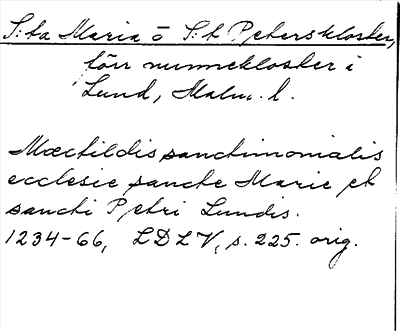 S:ta Maria o S:t Peterskloster,
förr nunnekloster i
Lund, Malm. l.
Mectildis sanctimonialis
ecclesie sancte Marie et
sancti Petri Lundis.
1234-66, LDLV, s. 225. orig.